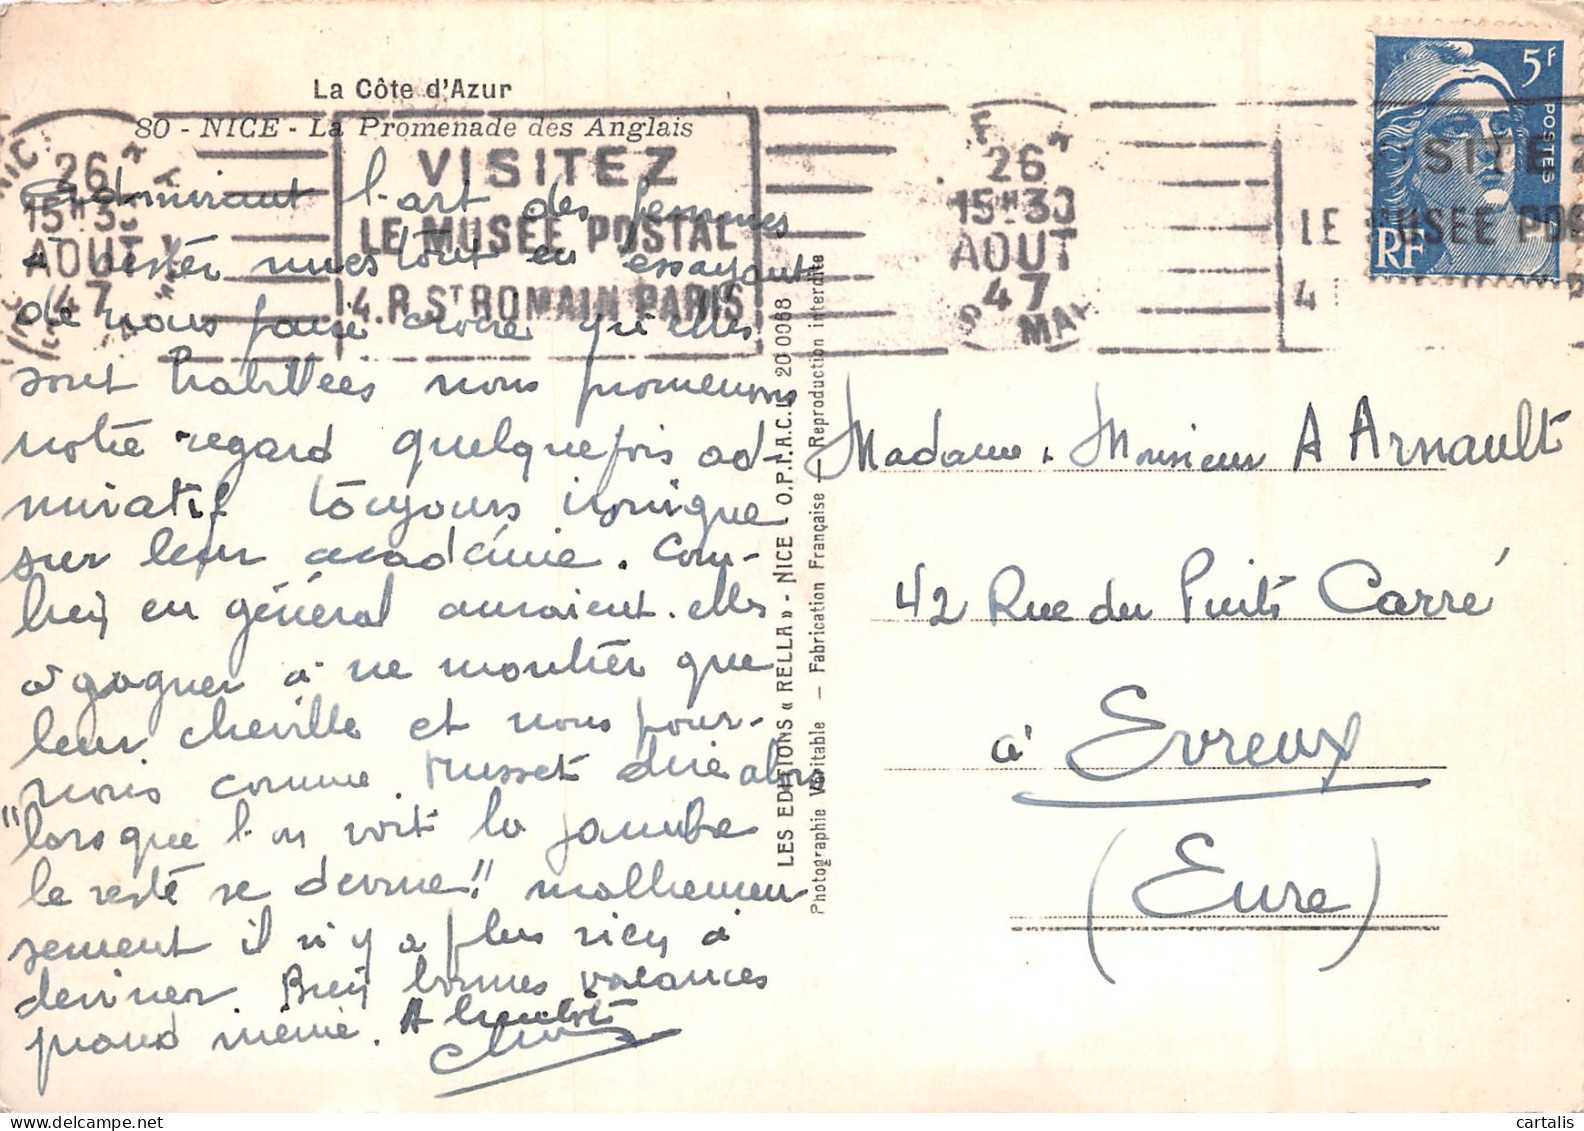 La Côte d'Azur
80 - NICE - La Promenade des Anglais
VISITEZ
LE MUSÉE POSTAL
4.R.ST ROMAIN PARIS
26
15H3
AOUT
47
26
15H30
AOUT
47
SITEZ
LE MUSÉE POS
4
5F
POSTES
RF
Admirant l'art des femmes
à rester nues tout en essayant
de nous faire croire qu'elles
sont habillées nous promenons
notre regard quelquefois ad-
miratif toujours ironique
sur leur académie. Com-
bien en général auraient-elles
à gagner à ne montrer que
leur cheville et nous pour-
rions comme Musset dire alors
"lorsque l'on voit la jambe
le reste se devine" malheureu
sement il n'y a plus rien à
deviner Bien bonnes vacances
quand même. A bientôt
LES EDITIONS « RELLA » - NICE O.P.I.A.C.L. 20 0068
Photographie Véritable — Fabrication Française — Reproduction interdite
Madame & Monsieur A Arnault
42 Rue du Puits Carré
à Evreux
(Eure)
cartalis